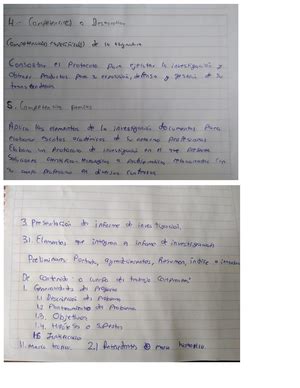 4.- Competencia(s) a Desarrollar
Competencia(s) específica(s) de la asignatura
Consolidar el Protocolo para ejecutar la investigación y
obtener productos para su exposición, defensa y gestión de su
trascendencia
5. Competencias previas
Aplica los elementos de la investigación documental para
elaborar escritos académicos de su entorno profesional
Elabora un Protocolo de investigación en el que presenta
Soluciones relacionadas con
su campo profesional en diversos contextos
3. Presentación del informe de investigación.
3.1. Elementos que integran el informe de investigación
Preliminares: Portada, agradecimientos, Resumen, índice e
De contenido o cuerpo del trabajo
1. Generalidades del Proyecto
1.1 Descripción del Problema
1.2 Planteamiento del Problema
1.3. Objetivos
1.4. Hipótesis o Supuestos
1.5 Justificación
II. Marco teórico. 2.1 Antecedentes o marco histórico.